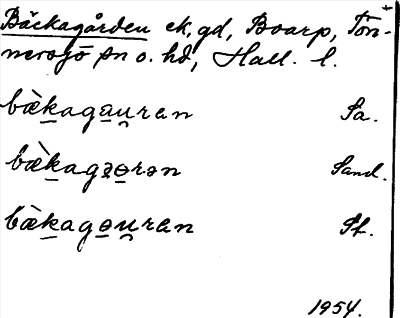 Bäckagården ek, gd, Boarp, Tön-
nersjö sn o. hd, Hall. l.
bæ̀kagau̯ran Sa.
bæ̀kagɜɵrən Sand.
bæ̀kagɵu̯ran St.
1954.